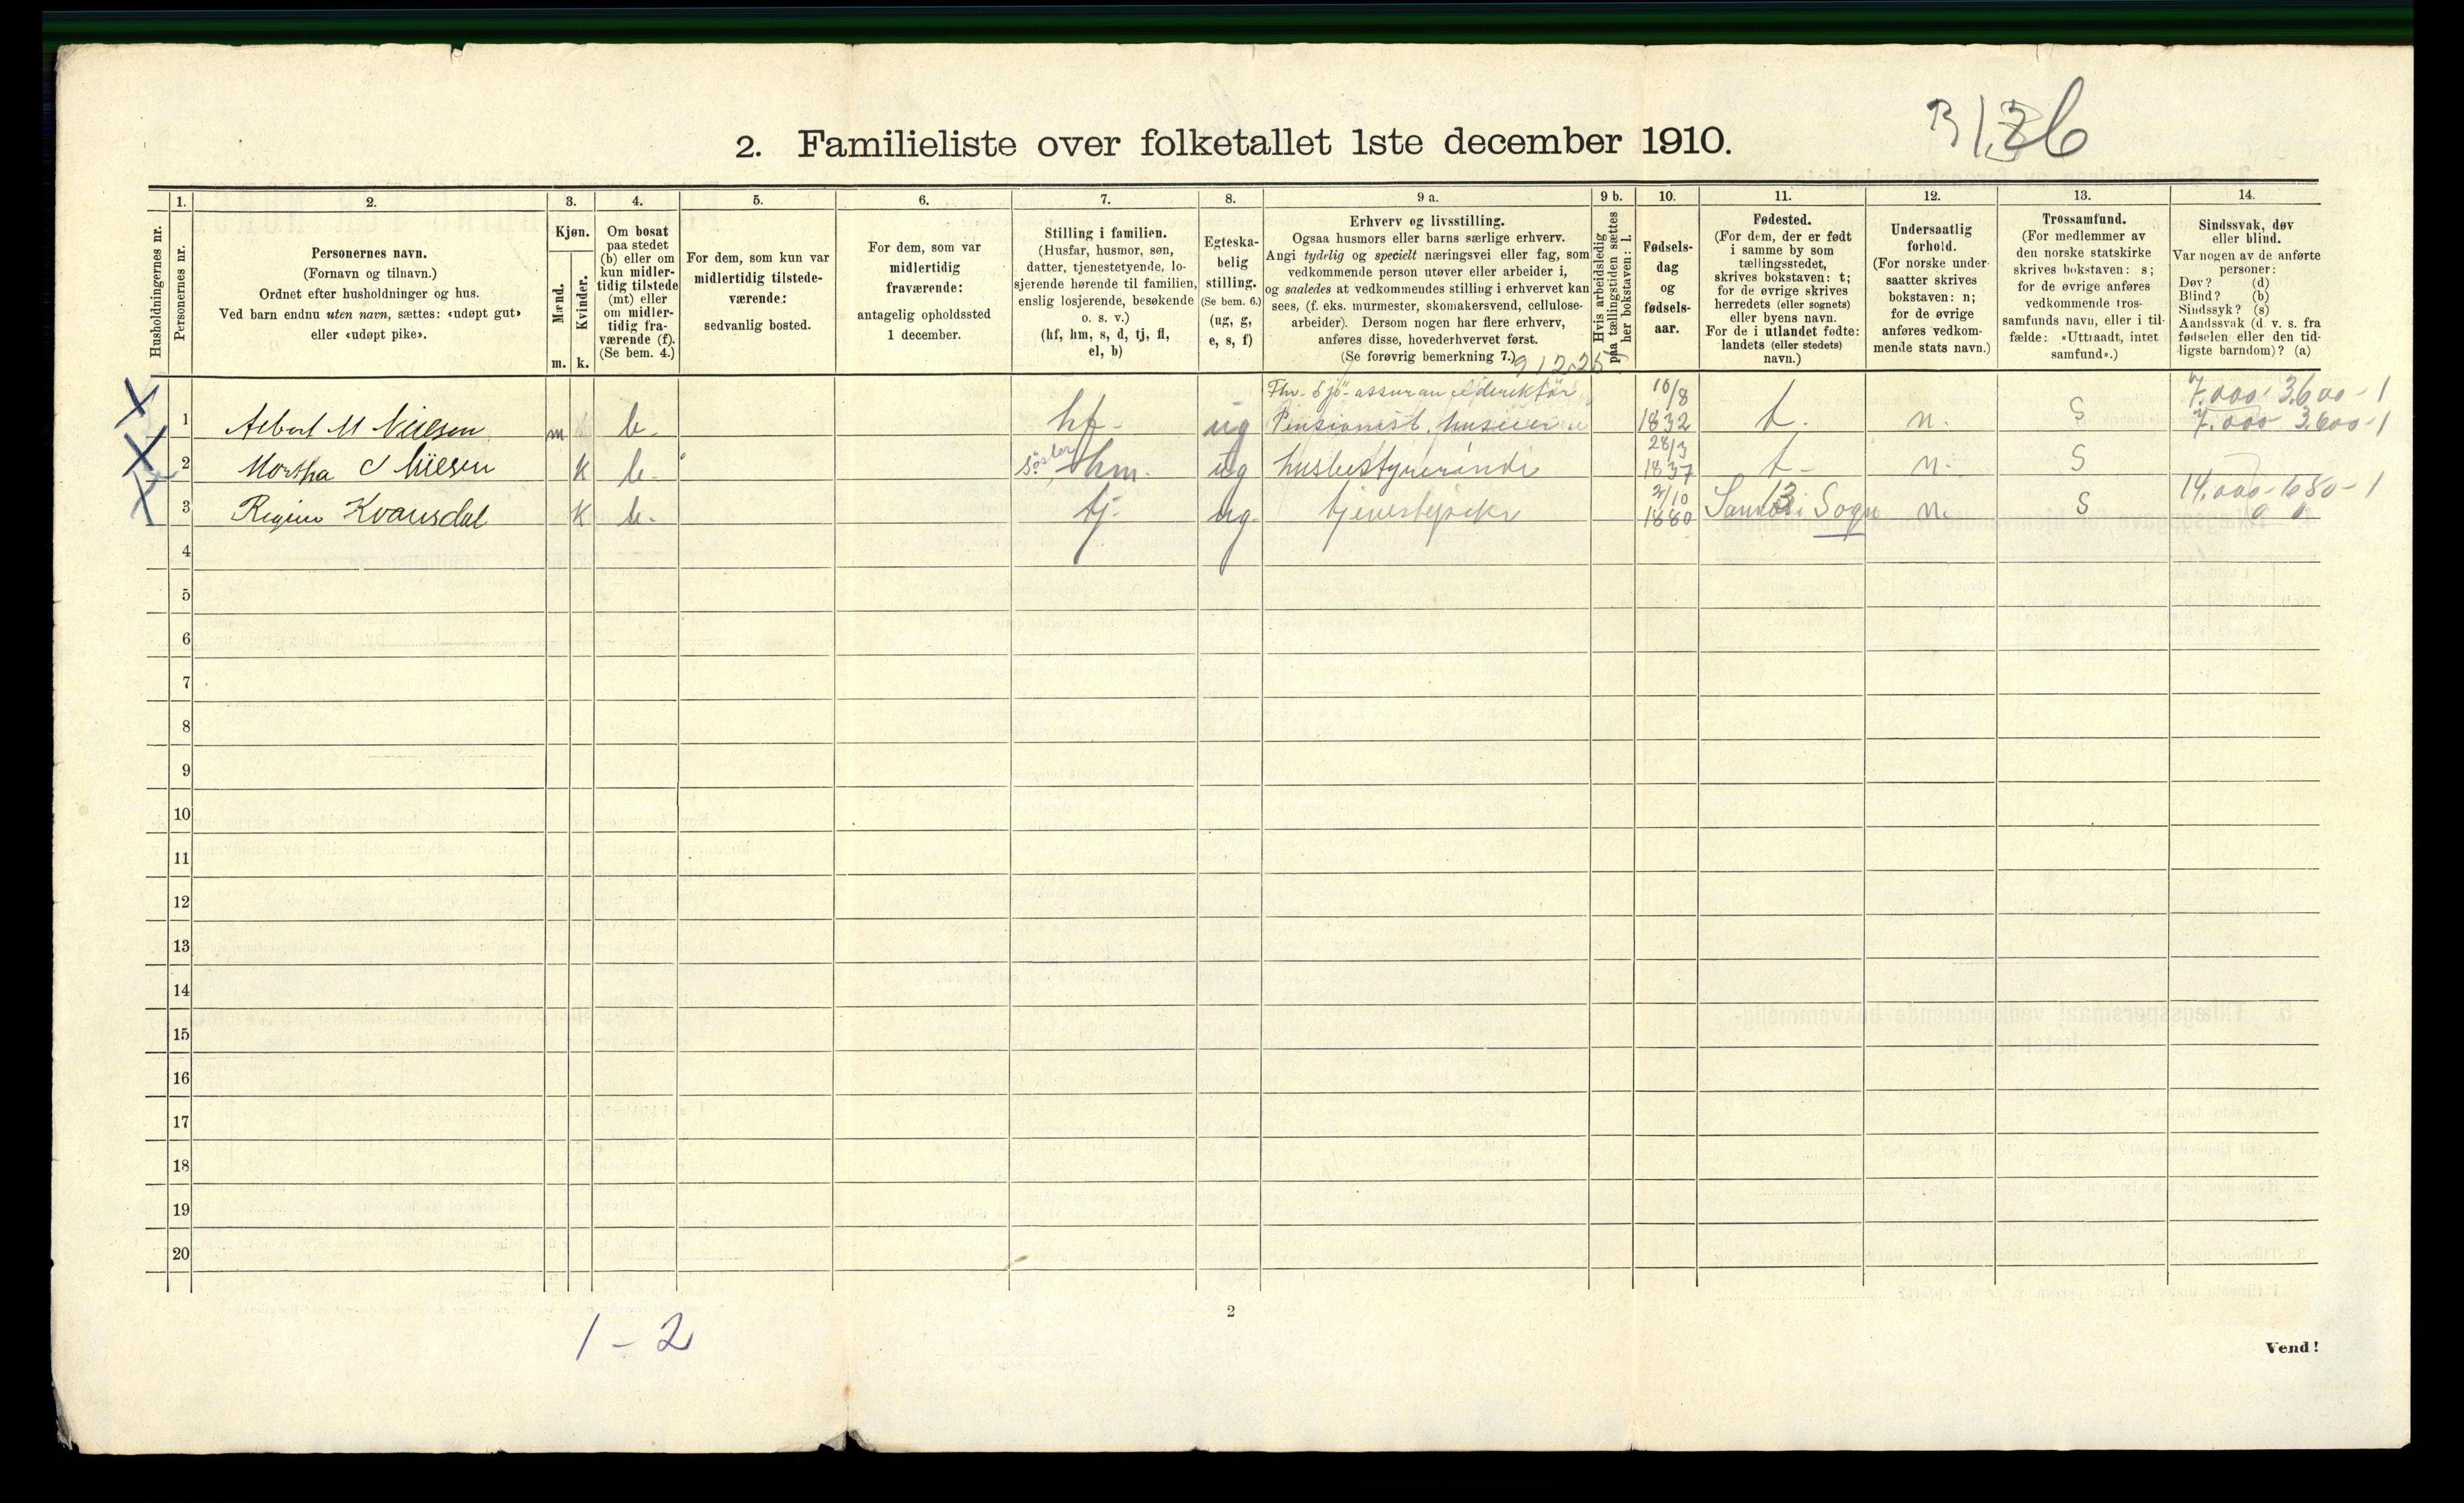 2. Familieliste over folketallet 1ste december 1910.
Husholdningernes nr.
1.
Personernes nr.
2.
Personernes navn.
(Fornavn og tilnavn.)
Ordnet efter husholdninger og hus.
Ved barn endnu uten navn, sættes: «udøpt gut»
eller «udøpt pike».
3.
Kjøn.
Mænd.
Kvinder.
m. k.
4.
Om bosat
paa stedet
(b) eller om
kun midler-
tidig tilstede
(mt) eller
om midler-
tidig fra-
værende (f).
(Se bem. 4.)
5.
For dem, som kun var
midlertidig tilstede-
værende:
sedvanlig bosted.
6.
For dem, som var
midlertidig
fraværende:
antagelig opholdssted
1 december.
7.
Stilling i familien.
(Husfar, husmor, søn,
datter, tjenestetyende, lo-
sjerende hørende til familien,
enslig losjerende, besøkende
o. s. v.)
(hf, hm, s, d, tj, fl,
el, b)
8.
Egteska-
belig
stilling.
(Se bem. 6.)
(ug, g,
e, s, f)
9 a.
Erhverv og livsstilling.
Ogsaa husmors eller barns særlige erhverv.
Angi tydelig og specielt næringsvei eller fag, som
vedkommende person utøver eller arbeider i,
og saaledes at vedkommendes stilling i erhvervet kan
sees, (f. eks. murmester, skomakersvend, cellulose-
arbeider). Dersom nogen har flere erhverv,
anføres disse, hovederhvervet først.
(Se forøvrig bemerkning 7.)
9 b.
Hvis arbeidsledig
paa tællingstiden sættes
her bokstaven: l.
10.
Fødsels-
dag
og
fødsels-
aar.
11.
Fødested.
(For dem, der er født
i samme by som
tællingsstedet,
skrives bokstaven: t;
for de øvrige skrives
herredets (eller sognets)
eller byens navn.
For de i utlandet fødte:
landets (eller stedets)
navn.)
12.
Undersaatlig
forhold.
(For norske under-
saatter skrives
bokstaven: n;
for de øvrige
anføres vedkom-
mende stats navn.)
13.
Trossamfund.
(For medlemmer av
den norske statskirke
skrives bokstaven: s;
for de øvrige anføres
vedkommende tros-
samfunds navn, eller i til-
fælde: «Uttraadt, intet
samfund».)
14.
Sindssvak, døv
eller blind.
Var nogen av de anførte
personer:
Døv? (d)
Blind? (b)
Sindssyk? (s)
Aandssvak (d. v. s. fra
fødselen eller den tid-
ligste barndom)? (a)
X 1 Albert M Nielsen m b. hf - ug Pensionist 10/8 1832 t. n. S 7.000 3.600-1
7.000 3.600-1
X 2 Martha Nielsen k b. søster hm. ug husbestyrerinde 28/3 1837 t - n. S
X 3 Regine Kvamsdal k b. tj. ug. tjenestepike 2/10 1880 Sogn n. S 14.000-
4
5
6
7
8
9
10
11
12
13
14
15
16
17
18
19
20
1 - 2
2
Vend!